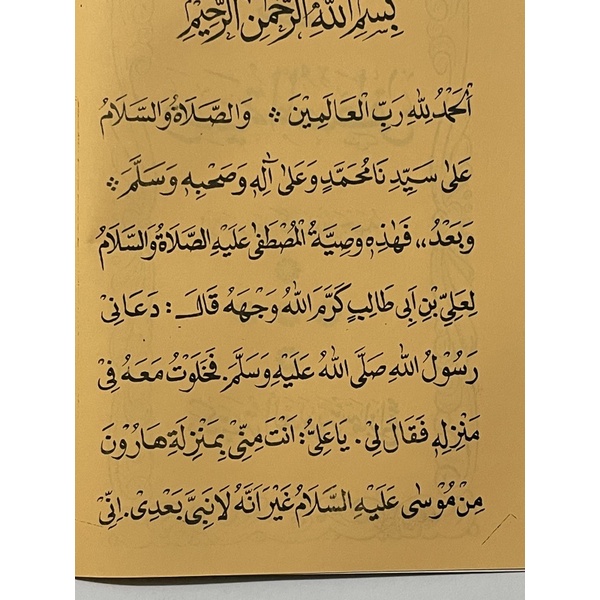 بِسْمِ اللّٰهِ الرَّحْمٰنِ الرَّحِيْمِ
اَلْحَمْدُ لِلّٰهِ رَبِّ الْعَالَمِيْنَ ❖ وَالصَّلَاةُ وَالسَّلَامُ
عَلٰى سَيِّدِنَا مُحَمَّدٍ وَعَلٰى اٰلِهٖ وَصَحْبِهٖ وَسَلَّمَ ❖
وَبَعْدُ،، فَهٰذِهٖ وَصِيَّةُ الْمُصْطَفٰى عَلَيْهِ الصَّلَاةُ وَالسَّلَامُ
لِعَلِيِّ بْنِ اَبِى طَالِبٍ كَرَّمَ اللّٰهُ وَجْهَهُ قَالَ : دَعَانِىْ
رَسُوْلُ اللّٰهِ صَلَّى اللّٰهُ عَلَيْهِ وَسَلَّمَ. فَخَلَوْتُ مَعَهُ فِىْ
مَنْزِلِهٖ فَقَالَ لِىْ. يَاعَلِىُّ: اَنْتَ مِنِّىْ بِمَنْزِلَةِ هَارُوْنَ
مِنْ مُوْسٰى عَلَيْهِ السَّلَامُ غَيْرَ اَنَّهُ لَا نَبِىَّ بَعْدِى. اِنِّىْ